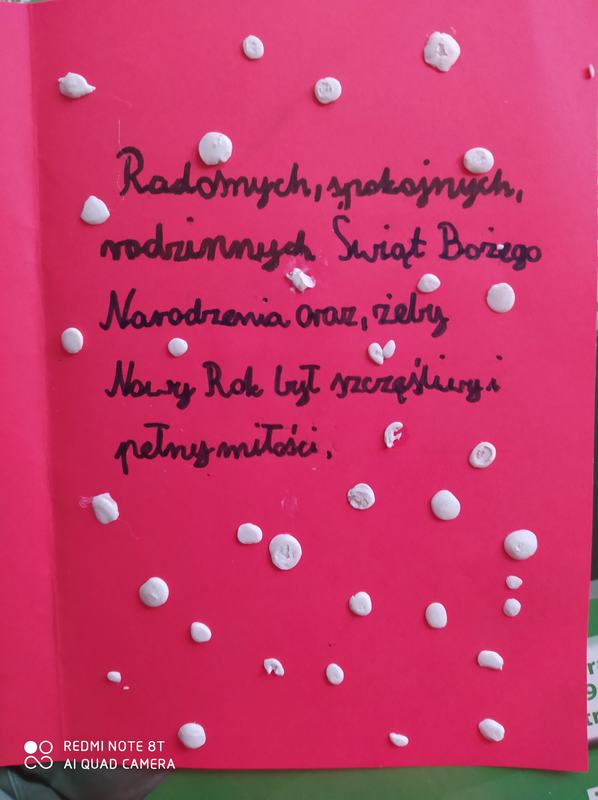 Radosnych, spokojnych,
rodzinnych Świąt Bożego
Narodzenia oraz, żeby
Nowy Rok był szczęśliwy i
pełny miłości.
REDMI NOTE 8T
AI QUAD CAMERA